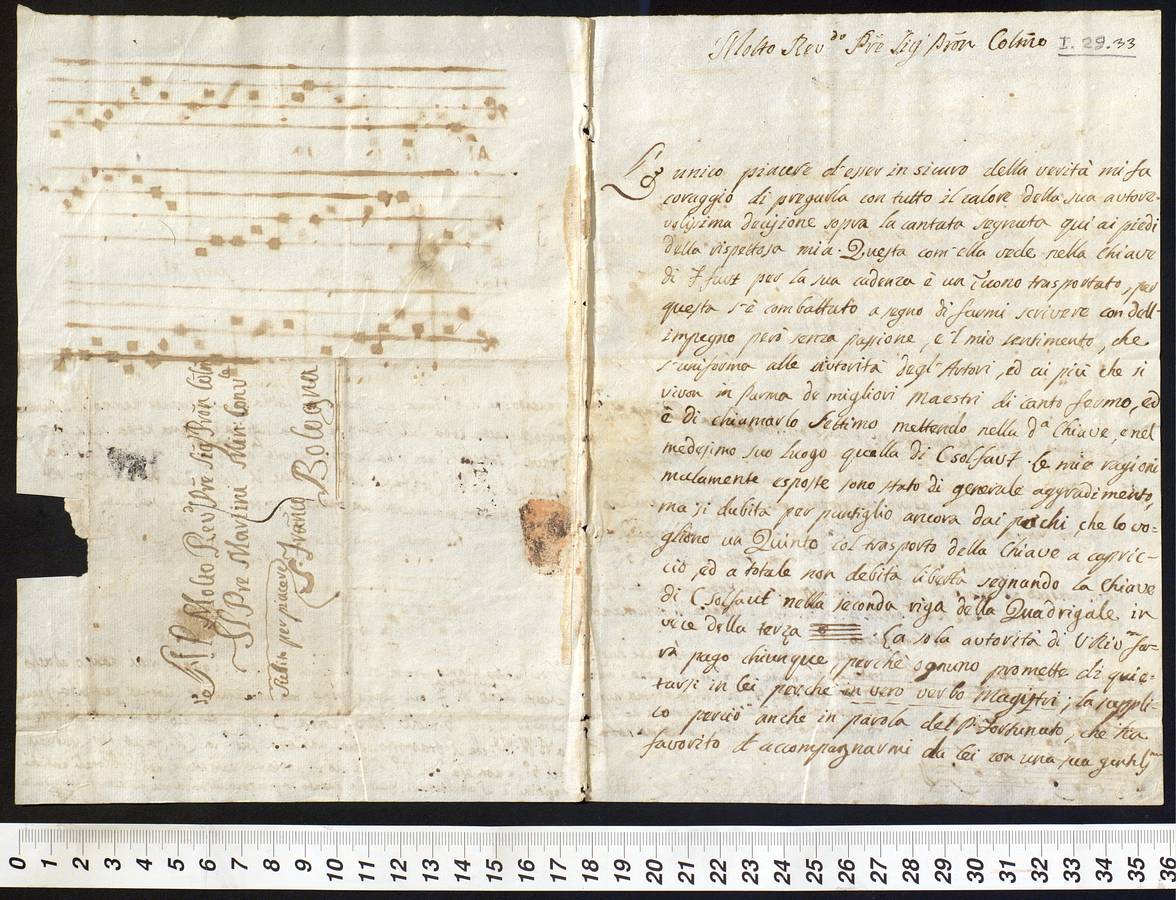 Molto Rev.do Prē Sig.r Prōn Colmō
I. 29. 33
L'unico piacere d'esser in sicuro della verità mi fa
coraggio di pregarla con tutto il calore della sua autore-
volissima decisione sopra la cantata segnata qui ai piedi
della rispettosa mia. Questa com'ella vede nella Chiave
di Ffaut per la sua cadenza è un Tuono trasportato, per
questa s'è combattuto a segno di farmi scrivere con dell'
impegno però senza passione, e il mio sentimento, che
s'uniforma alle autorità degl'Autori, ed ai più che si
vivon in Parma de migliori Maestri di canto fermo, ed
è di chiamarlo Settimo mettendo nella d.a Chiave, e nel
medesimo suo luogo quella di Csolfaut. Le mie ragioni
malamente esposte sono stato di generale aggradimento,
ma si dubita per puntiglio ancora dai pochi, che lo vo-
gliono un Quinto col trasporto della Chiave a capric-
cio, ed a totale non debita libertà segnando la Chiave
di Csolfaut nella seconda riga della Quadrigale in
vece della terza. La sola autorità di V.
rà pago chiunque, perchè ognuno promette di quie-
tarsi in lei perchè in vero verbo Magistri; la suppli-
co perciò anche in parola del P. Fortunato, che ha
favorito d'accompagnarmi da lei con una sua gentilissma
Molto Rev.do Prē Sig.r Prōn Colm
Il Prē Martini Min: Conv.
S. Franco
Subito per piacere
Bologna
0 1 2 3 4 5 6 7 8 9 10 11 12 13 14 15 16 17 18 19 20 21 22 23 24 25 26 27 28 29 30 31 32 33 34 35 36